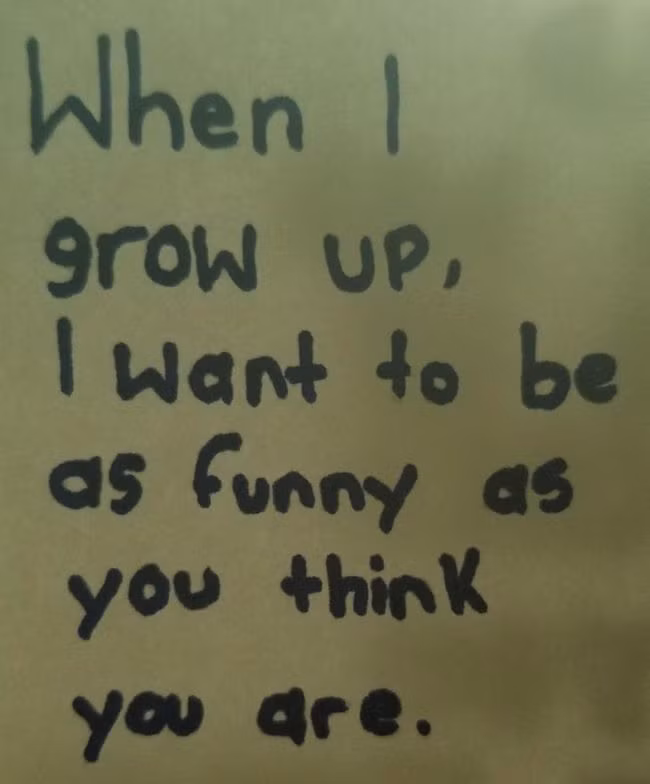 When I
grow up,
I want to be
as funny as
you think
you are.